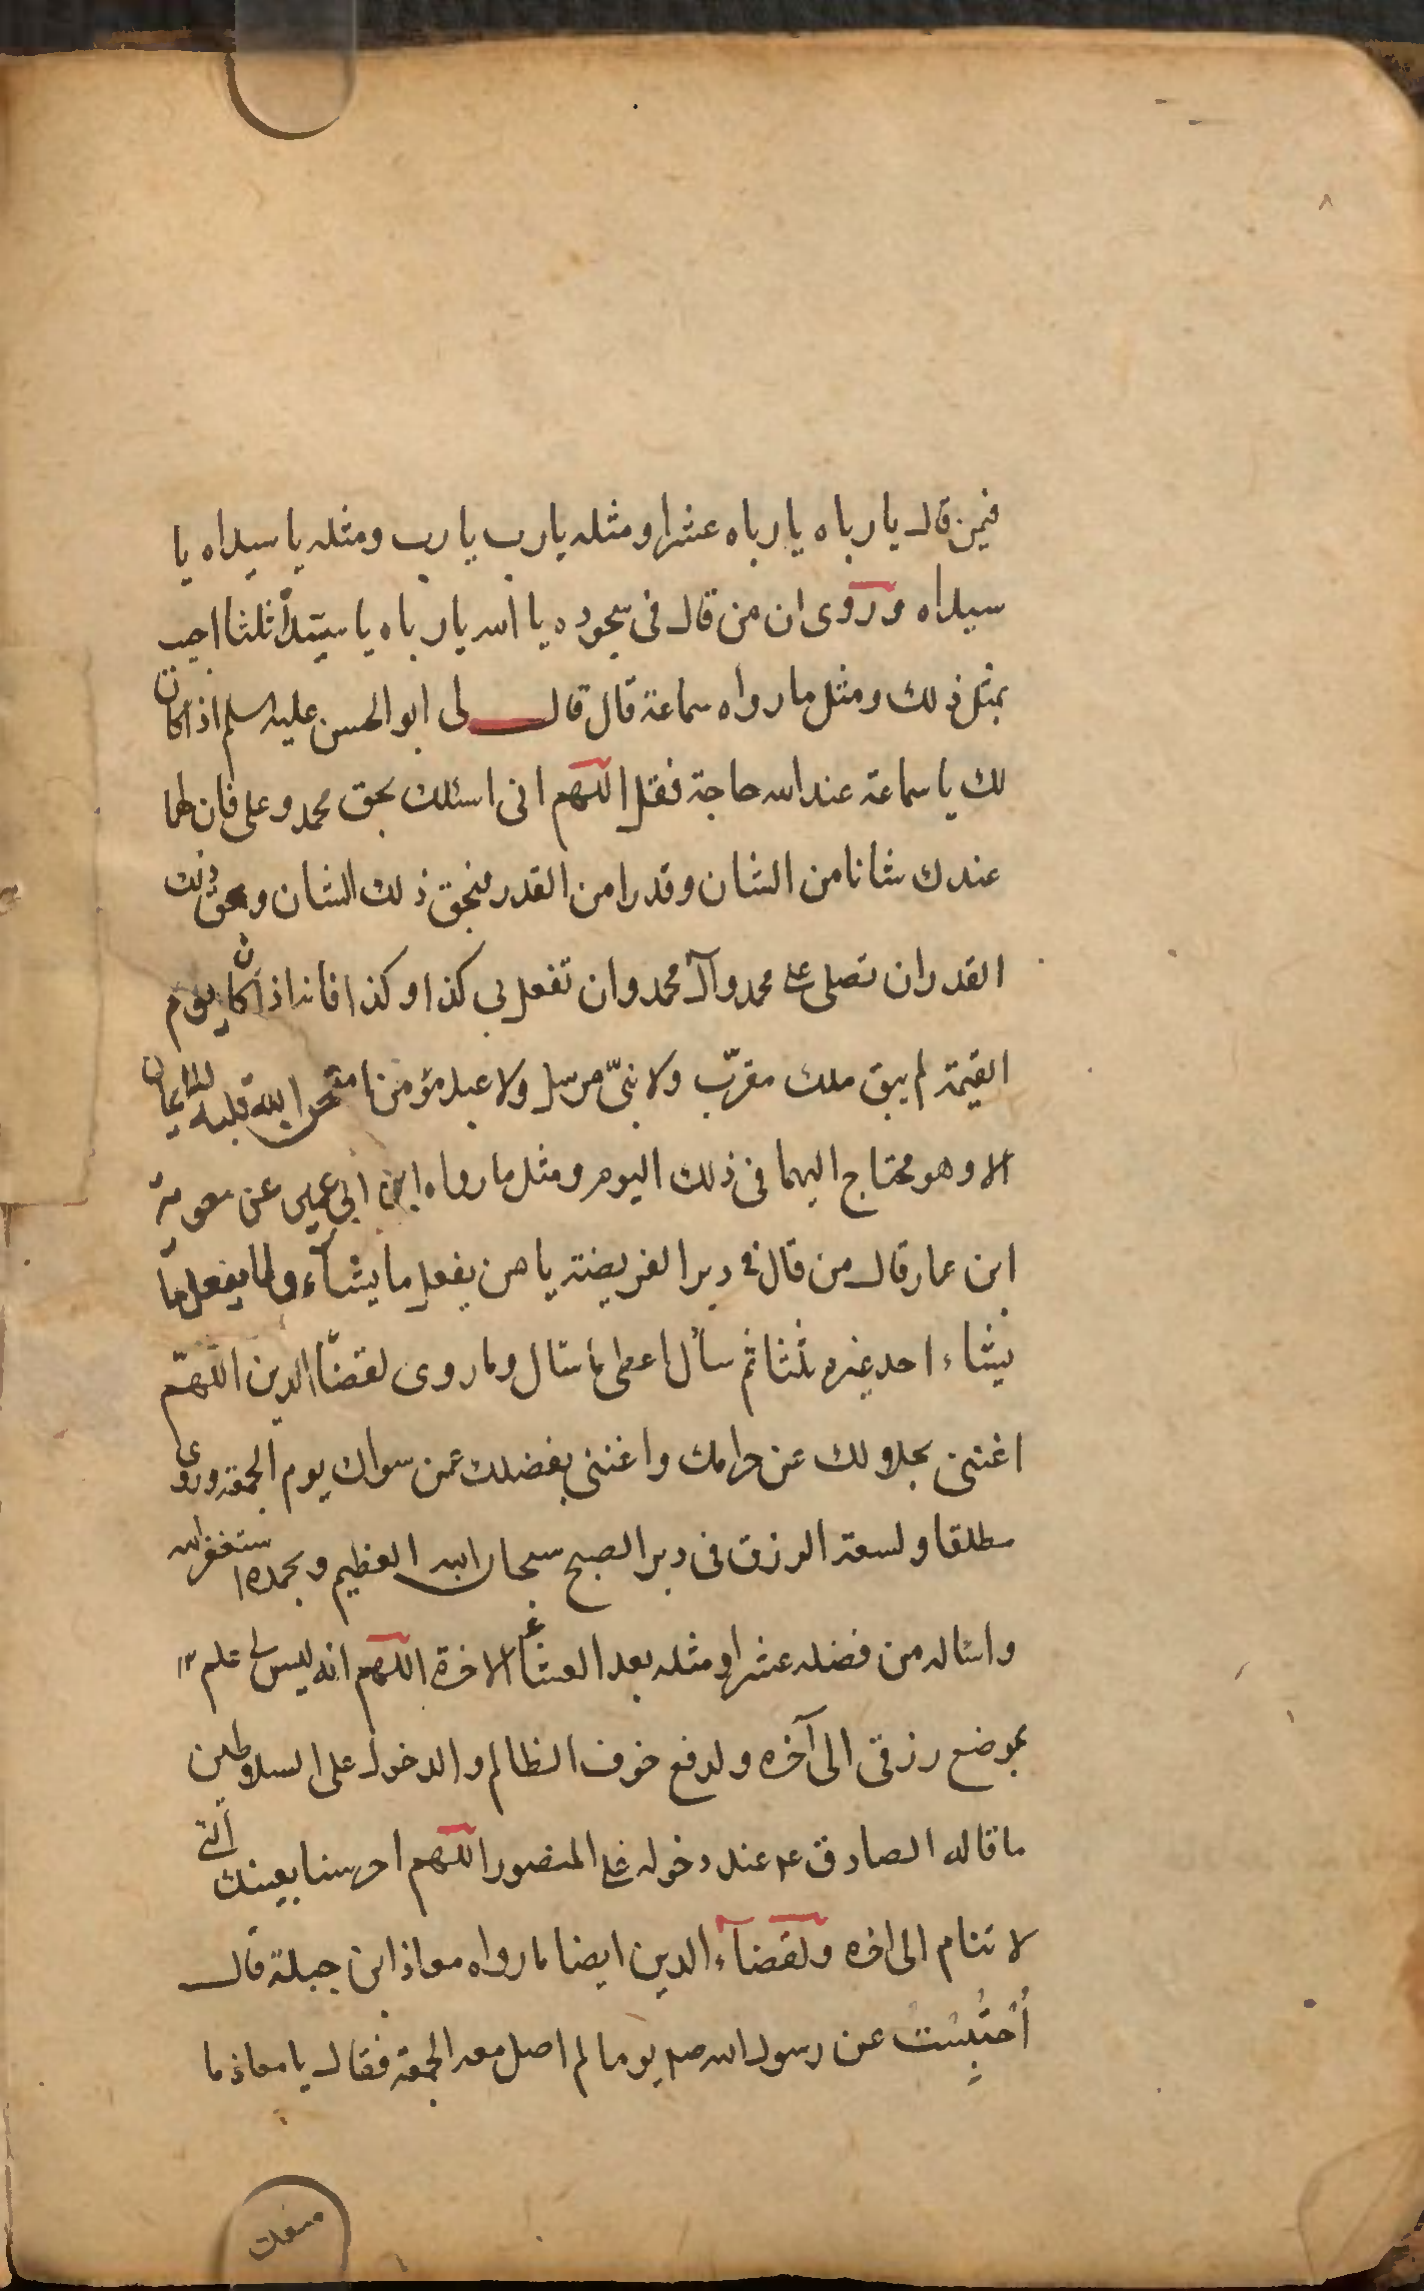 ٨
فيمن قال يا رباه يا رباه عشرا ومثله يا رب يا رب ومثله يا سيداه يا
سيداه وروى ان من قال فى سجوده يا الله يا رباه يا سيداه ثلثا اجيب
بمثل ذلك ومثل ما رواه سماعة قال قال لى ابو الحسن عليه السلم اذا كان
لك يا سماعة عند الله حاجة فقل اللهم انى اسئلك بحق محمد وعلى فان لهما
عندك شانا من الشان وقدرا من القدر فبحق ذلك الشان وبحق ذلك
القدر ان تصلى على محمد وآل محمد وان تفعل بى كذا وكذا فانه اذا كان يوم
القيمة لم يبق ملك مقرّب ولا نبىّ مرسل ولا عبد مؤمن امتحن الله قلبه للايمان
الا وهو محتاج اليهما فى ذلك اليوم ومثل ما رواه ابن ابى عمير عن معوية
ابن عمار قال من قال فى دبر الفريضة يا من يفعل ما يشآء ولا يفعل ما
يشاء احد غيره ثلثا ثم سأل اعطى ما سال وما روى لقضآء الدين اللهمّ
اغننى بحلالك عن حرامك واغننى بفضلك عمن سواك يوم الجمعة وروى
مطلقا ولسعة الرزق فى دبر الصبح سبحان الله العظيم وبحمده استغفر الله
واساله من فضله عشرا ومثله بعد العشآء الاخرة اللهم انه ليس لى علم
بموضع رزقى الى آخره ولدفع خوف الظالم والدخول على السلاطين
ما قاله الصادق ع عند دخوله على المنصور اللهم احرسنا بعينك التى
لا تنام الى اخره ولقضآء الدين ايضا ما رواه معاذ ابن جبلة قال
أُحْتُبِسْتُ عن رسول الله صم يوما لم اصل معه الجمعة فقال يا معاذ ما
منعك